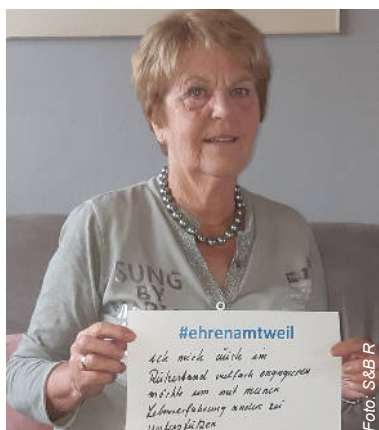 SUNG
BY
#ehrenamtweil
ich mich auch im
Ruhestand vielfach engagieren
möchte um mit meiner
Lebenserfahrung andere zu
unterstützen
Foto: S&B R